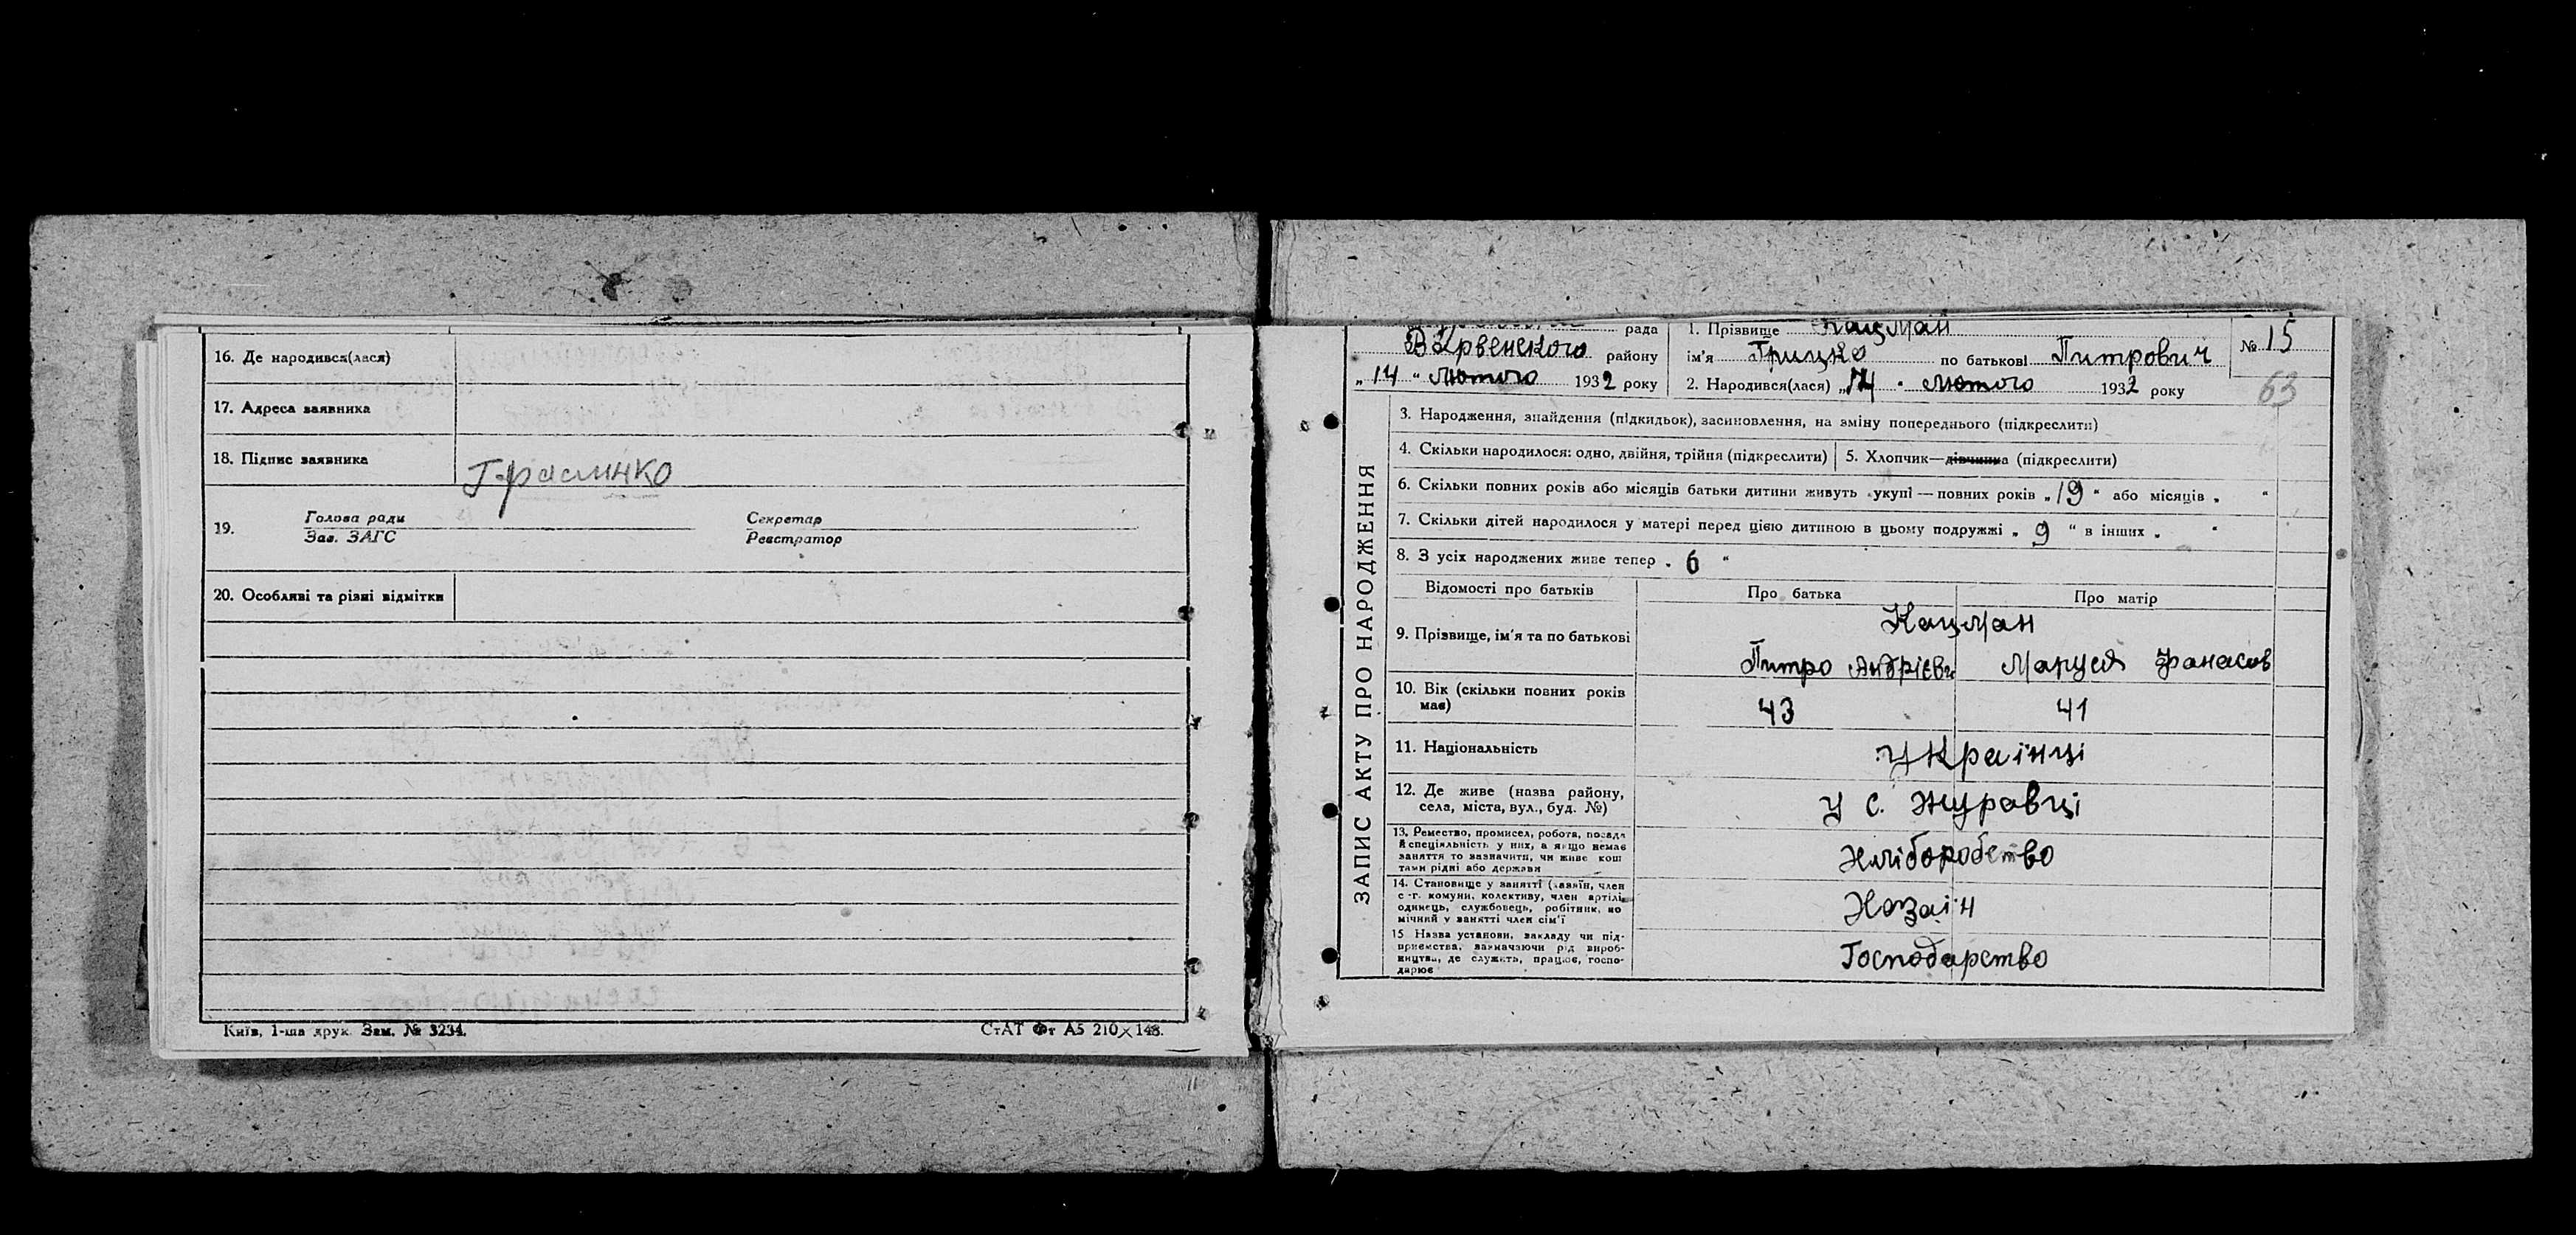 16. Де народився(лася)
17. Адреса заявника
18. Підпис заявника
19. Голова ради Секретар
Зав. ЗАГС Реєстратор
20. Особливі та різні відмітки
Київ, 1-ша друк. Зам. № 3234.
СтАТ Фт А5 210×148.
ЗАПИС АКТУ ПРО НАРОДЖЕННЯ
рада
Варвенского району
„14" Лютого 1932 року
1. Прізвище Кацман
ім'я Грицко по батькові Питрович
2. Народився(лася) „14" лютого 1932 року
№ 15
63
3. Народження, знайдення (підкидьок), засиновлення, на зміну попереднього (підкреслити)
4. Скільки народилося: одно, двійня, трійня (підкреслити)
5. Хлопчик—дівчинка (підкреслити)
6. Скільки повних років або місяців батьки дитини живуть укупі — повних років „19" або місяців „ "
7. Скільки дітей народилося у матері перед цією дитиною в цьому подружжі „9" в інших „ "
8. З усіх народжених живе тепер „6"
Відомості про батьків Про батька Про матір
9. Прізвище, ім'я та по батькові
Кацман
Питро Андрієви Маруся Фанасов
10. Вік (скільки повних років має) 43 41
11. Національність Украінці
12. Де живе (назва району,
села, міста, вул., буд. №)
У с. Журавці
13. Ремество, промисел, робота, посада
й спеціяльність у них, а якщо немає
заняття то зазначити, чи живе кош
тами рідні або держави
Хліборобство
14. Становище у занятті (хазяїн, член
с.-г. комуни, колективу, член артілі,
одинець, службовець, робітник, по
мічний у занятті член сім'ї
Хазаін
15. Назва установи, закладу чи під-
приємства, зазначаючи рід вироб-
ництва, де служить, працює, госпо-
дарює
Господарство